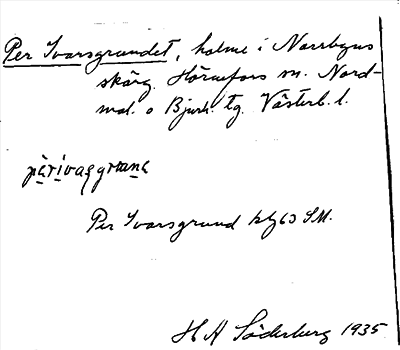 Per Ivarsgrundet, holme i Norrbyns
skärg. Hörnefors sn. Nord-
mal. o Bjurh. tg. Västerb. l.
Per Ivarsgrund hg 63 SM.
H A Söderberg 1935